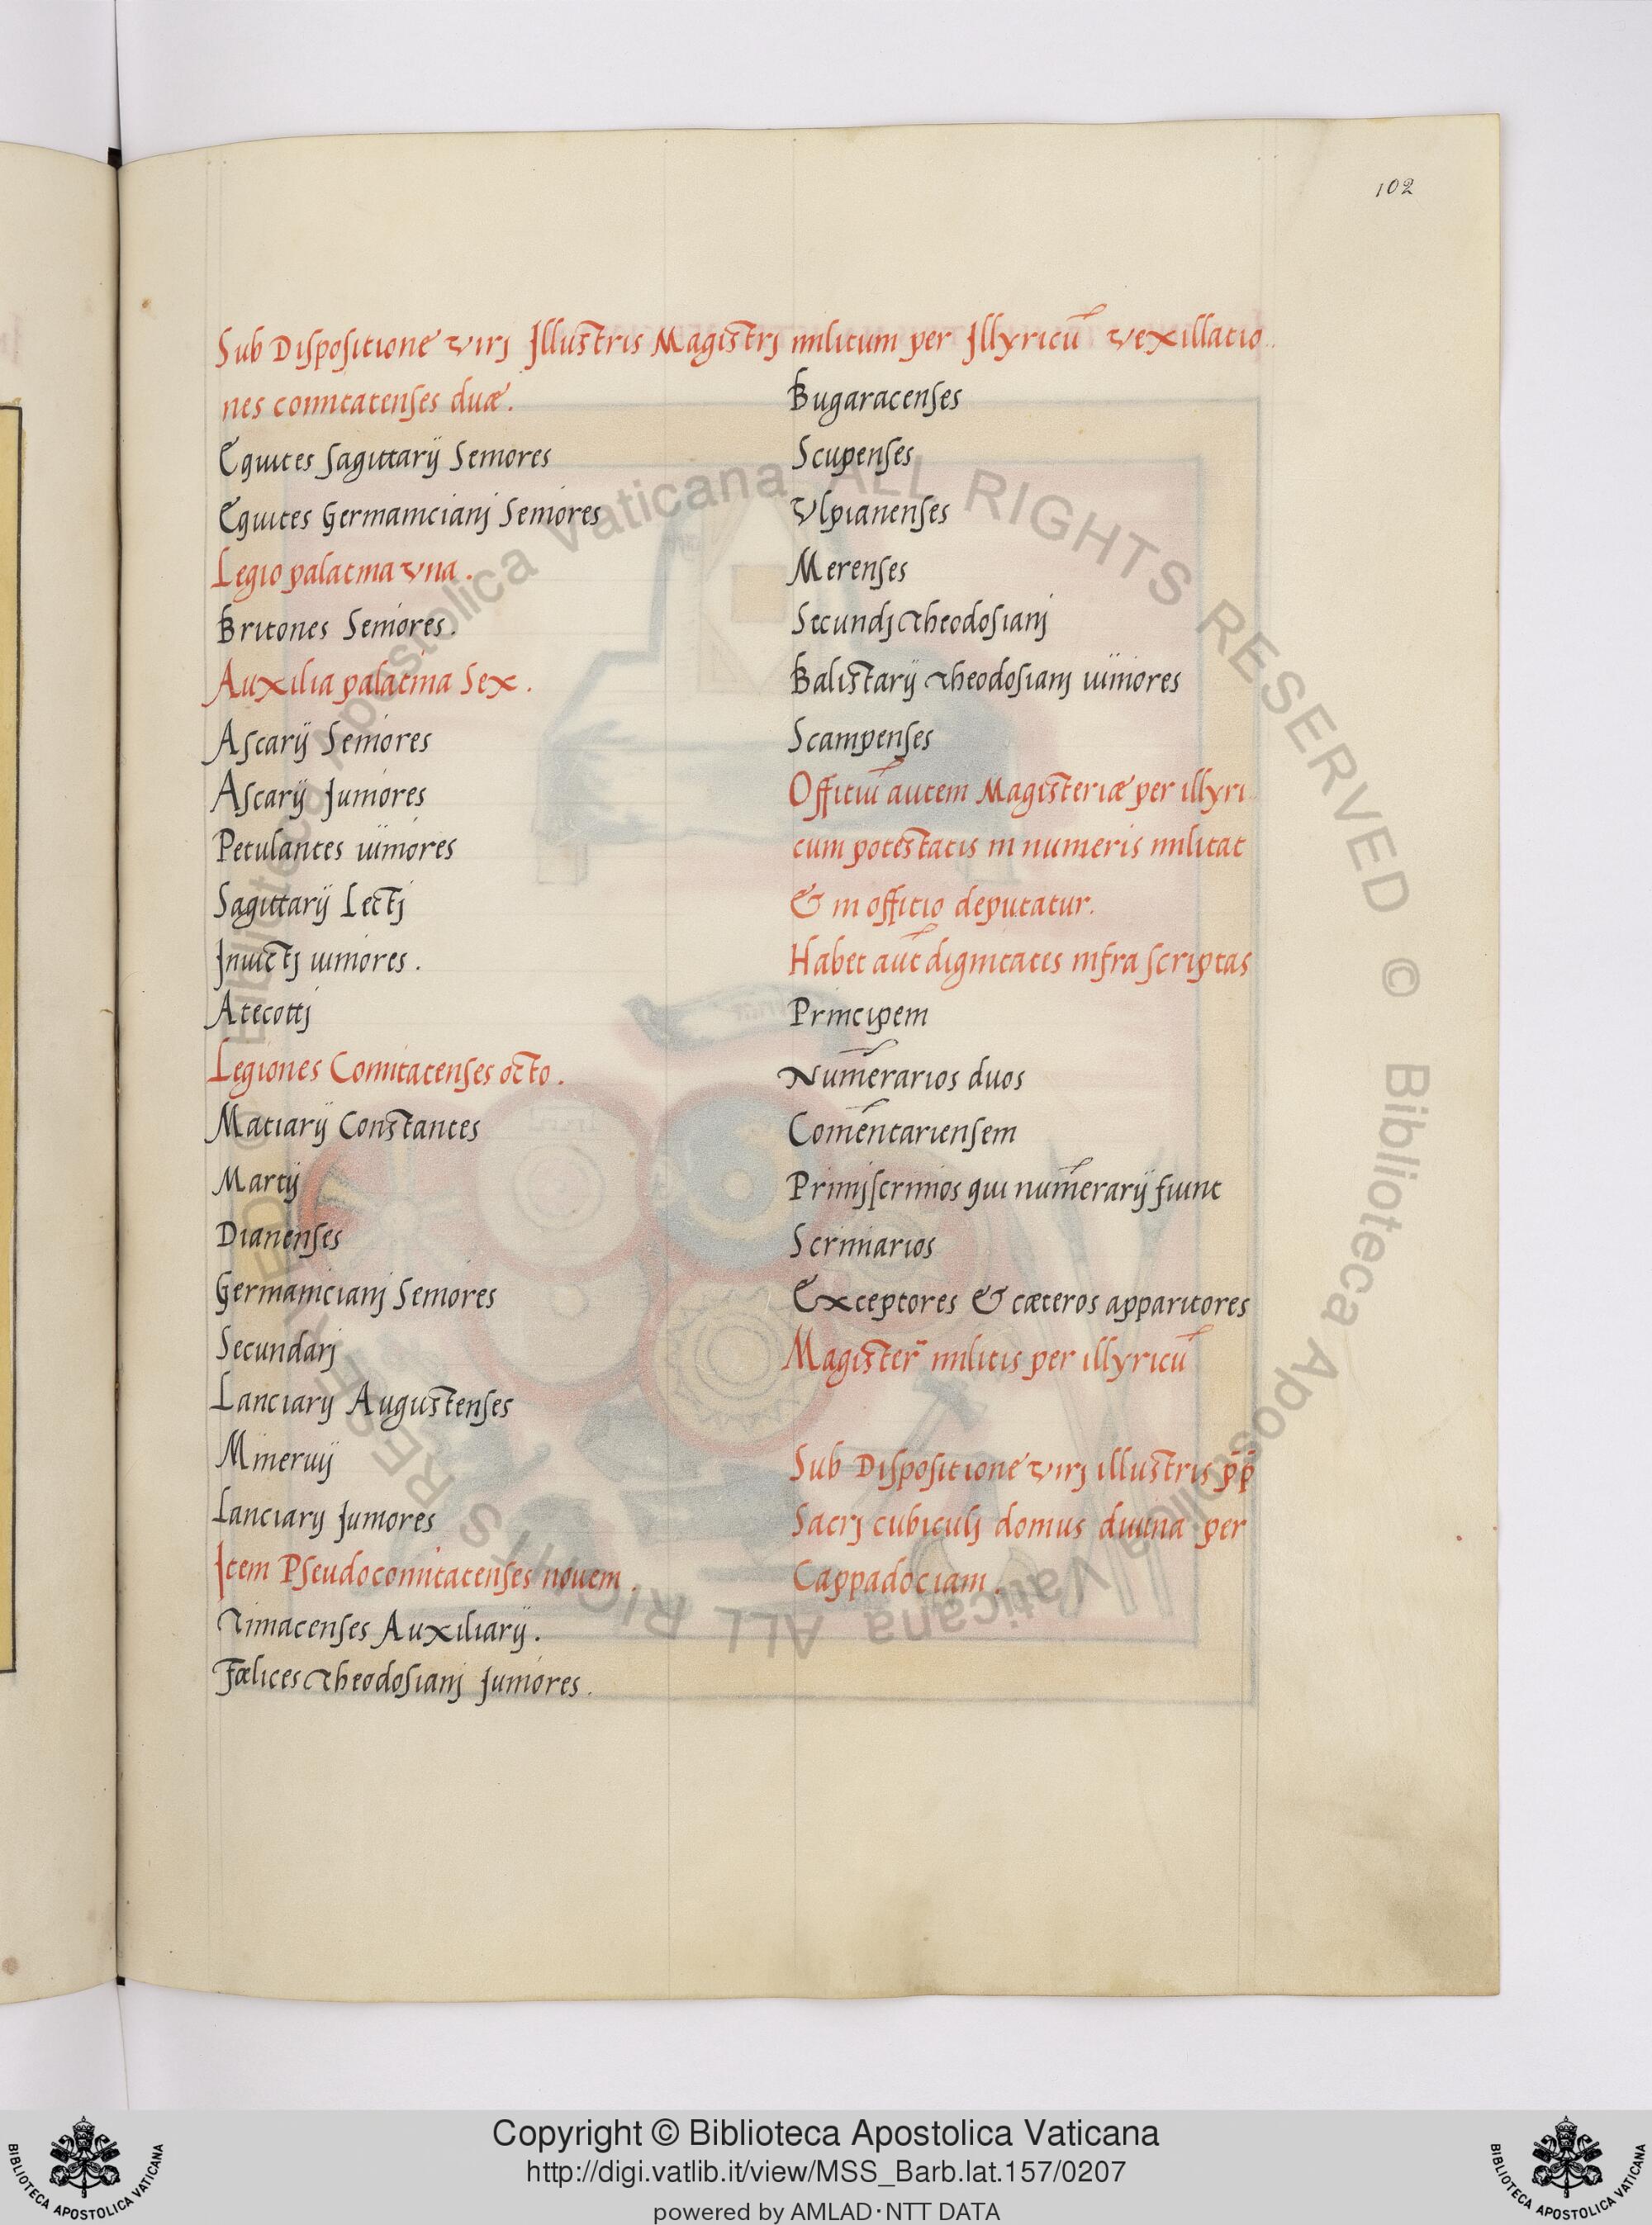 102
Sub Dispositione viri Illustris Magistri militum per Illyricū vexillatio
nes comitatenses duæ.
Equites Sagittarij Seniores
Equites Germanicianj Seniores
Legio palatina vna.
Britones Seniores.
Auxilia palatina Sex.
Ascarij Seniores
Ascarij Juniores
Petulantes iuniores
Sagittarij Lectj
Jnuictj iuniores.
Atecottj
Legiones Comitatenses octo.
Matiarij Constantes
Martij
Dianenses
Germanicianj Seniores
Secundarj
Lanciarij Augustenses
Mineruij
Lanciarij Juniores
Jtem Pseudocomitatenses nouem.
Timacenses Auxiliarij.
Fœlices Theodosianj Juniores.
Bugaracenses
Scupenses
Vlpianenses
Merenses
Secundj Theodosianj
Balistarij Theodosianj iuniores
Scampenses
Officiū autem Magisteriæ per illyri
cum potestatis in numeris militat
& in officio deputatur.
Habet aūt dignitates infra scriptas
Principem
Num̄erarios duos
Com̄entariensem
Primiscrinios qui num̄erarij fiunt
Scriniarios
Exceptores & cæteros apparitores
Magister militis per illyricū
Sub Dispositione virj illustris p̄p̄
Sacrj cubiculj domus diuina per
Cappadociam.
© Biblioteca Apostolica Vaticana ALL RIGHTS RESERVED © Biblioteca Apostolica Vaticana ALL RIGHTS RESERVED
Copyright © Biblioteca Apostolica Vaticana
http://digi.vatlib.it/view/MSS_Barb.lat.157/0207
powered by AMLAD·NTT DATA
BIBLIOTECA APOSTOLICA VATICANA
BIBLIOTECA APOSTOLICA VATICANA